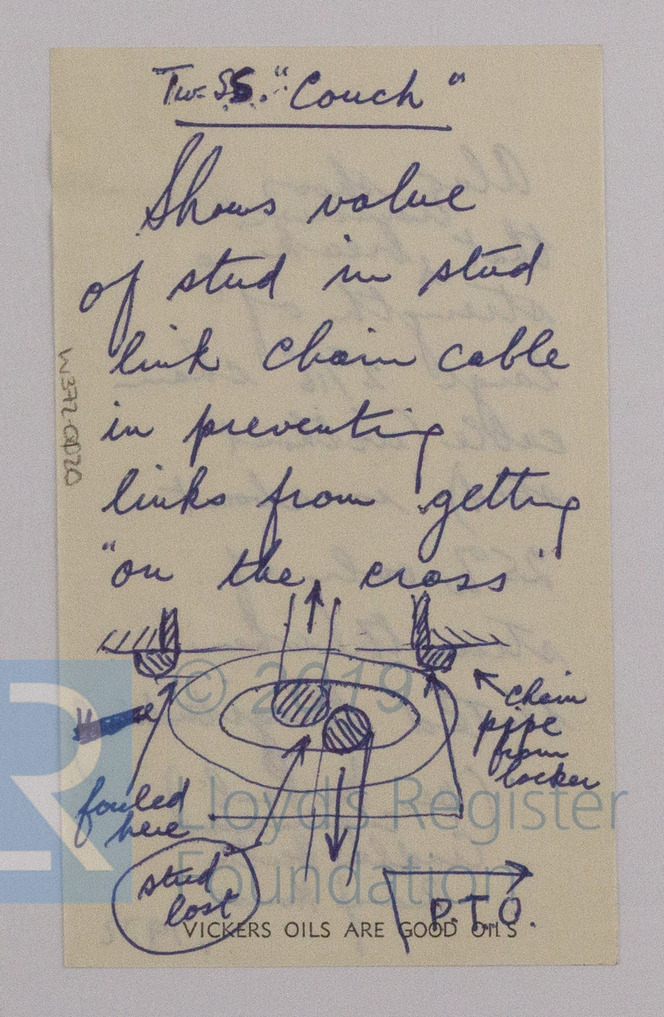 Tw. S.S. "Couch"
Shows value
of stud in stud
link chain cable
in preventing
links from getting
"on the cross"
W372-0020
© 2019
chain
pipe
from
locker
fouled
here
Lloyd's Register
Foundation
stud
lost
P.T.O.
VICKERS OILS ARE GOOD OILS